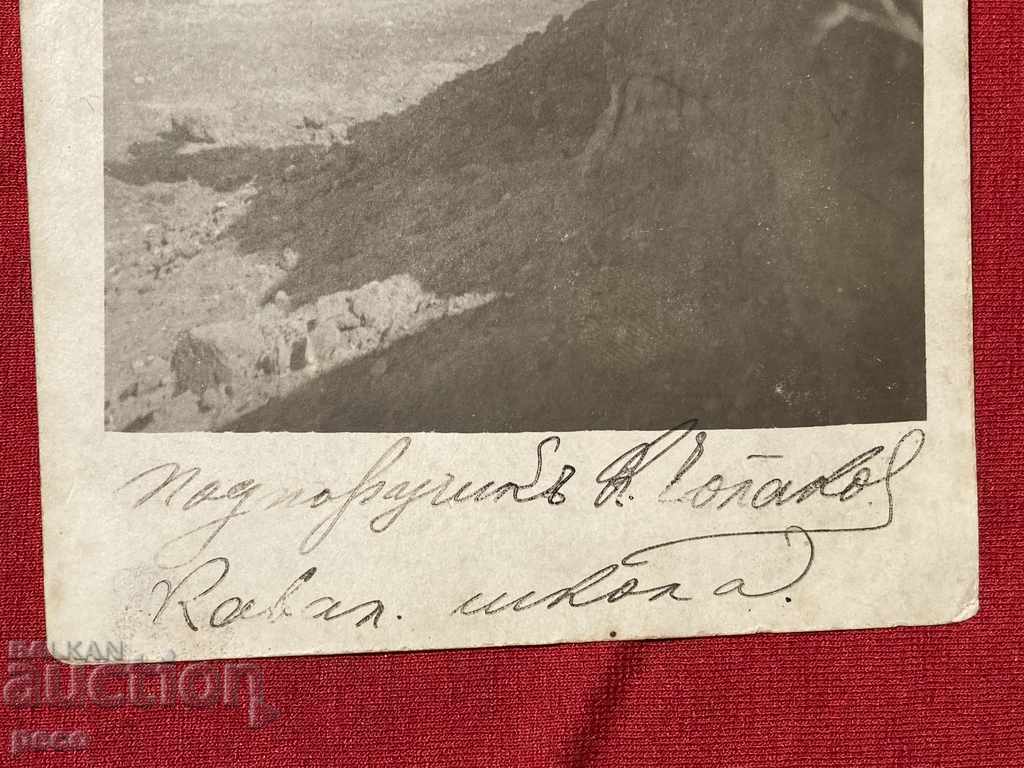 Подпоручикъ К. Чолаков.
Кавал. школа.
BALKAN
auction
pece